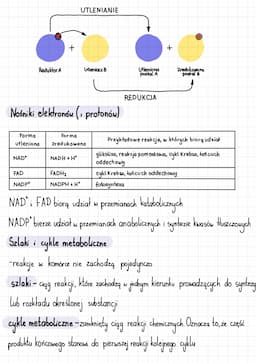 UTLENIANIE
+ +
Reduktor A Utleniacz B Utleniona postać A Zredukowana postać B
REDUKCJA
Nośniki elektronów (i protonów)
Forma utleniona Forma zredukowana Przykładowe reakcje, w których biorą udział
NAD⁺ NADH + H⁺ glikoliza, reakcja pomostowa, cykl Krebsa, łańcuch oddechowy
FAD FADH₂ cykl Krebsa, łańcuch oddechowy
NADP⁺ NADPH + H⁺ fotosynteza
NAD⁺ i FAD biorą udział w przemianach katabolicznych
NADP⁺ bierze udział w przemianach anabolicznych i syntezie kwasów tłuszczowych
Szlaki i cykle metaboliczne
-reakcje w komórce nie zachodzą pojedynczo
szlaki - ciąg reakcji, które zachodzą w jednym kierunku prowadzących do syntezy
lub rozkładu określonej substancji
cykle metaboliczne - zamknięty ciąg reakcji chemicznych. Oznacza to, że część
produktu końcowego stanowi do pierwszej reakcji kolejnego cyklu